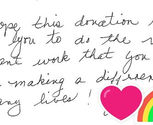 ope this donation
you to do the
ent work that you
making a differen
ny lives!